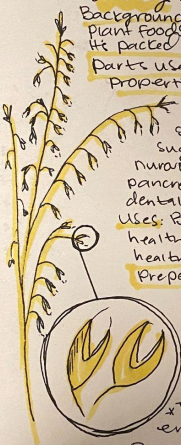 Background
Plant Food
It's packed
Parts use
Propert
s
su
nura
pancre
dental
Uses: R
health
healt
Prepa
*
en